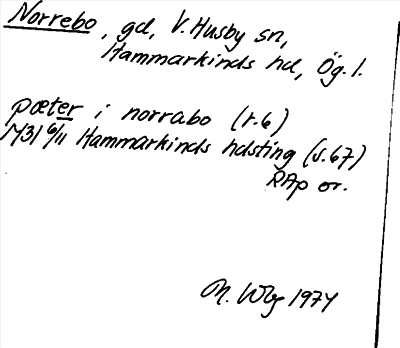 Norrebo, gd, V. Husby sn,
Hammarkinds hd, Ög. l.
pæter i norrabo (t. 6)
1431 6/11 Hammarkinds hdsting (s. 67)
RAp or.
M. Wbg 1974